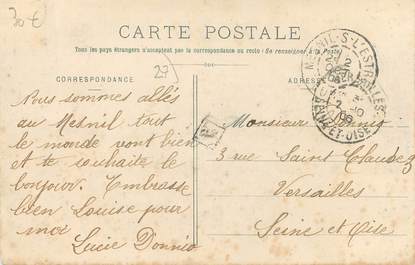 30 €
CARTE POSTALE
Tous les pays étrangers n'acceptent pas la correspondance au recto (Se renseigner à la Poste)
27
CORRESPONDANCE
ADRESSE
MESNIL-S-L'ESTRÉE
SEINE-ET-OISE
Nous sommes allés
au Mesnil tout
le monde vont bien
et te souhaite le
bonjour. Embrasse
bien Louise pour
moi
Lucie Donnio
Monsieur Donnio
3 rue Saint Claude
Versailles
Seine et Oise